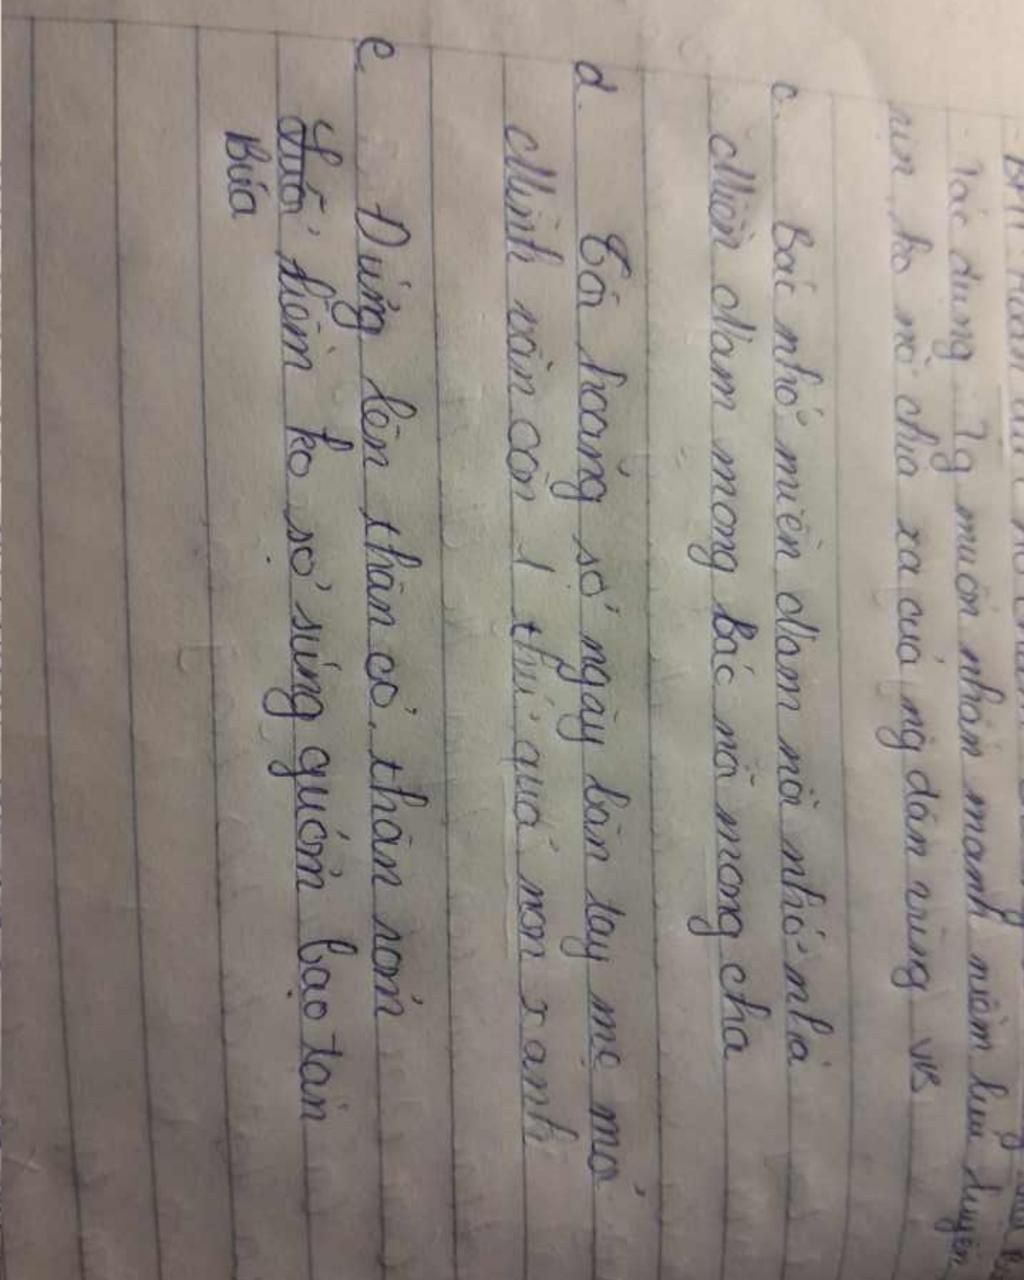 - BPTT: Hoán dụ
- Tác dụng: Tg muốn nhấn mạnh niềm lưu luyến
ko nỡ chia xa của ng dân vùng VB
c. Bác nhớ miền Nam nỗi nhớ nhà
Miền Nam mong Bác nỗi mong cha
d. Tôi hoảng sợ ngày bàn tay mẹ mỏi
Mình vẫn còn 1 thứ quả non xanh
e. Đứng lên thân cỏ, thân rơm
Búa liềm ko sợ súng gươm bạo tàn
Búa